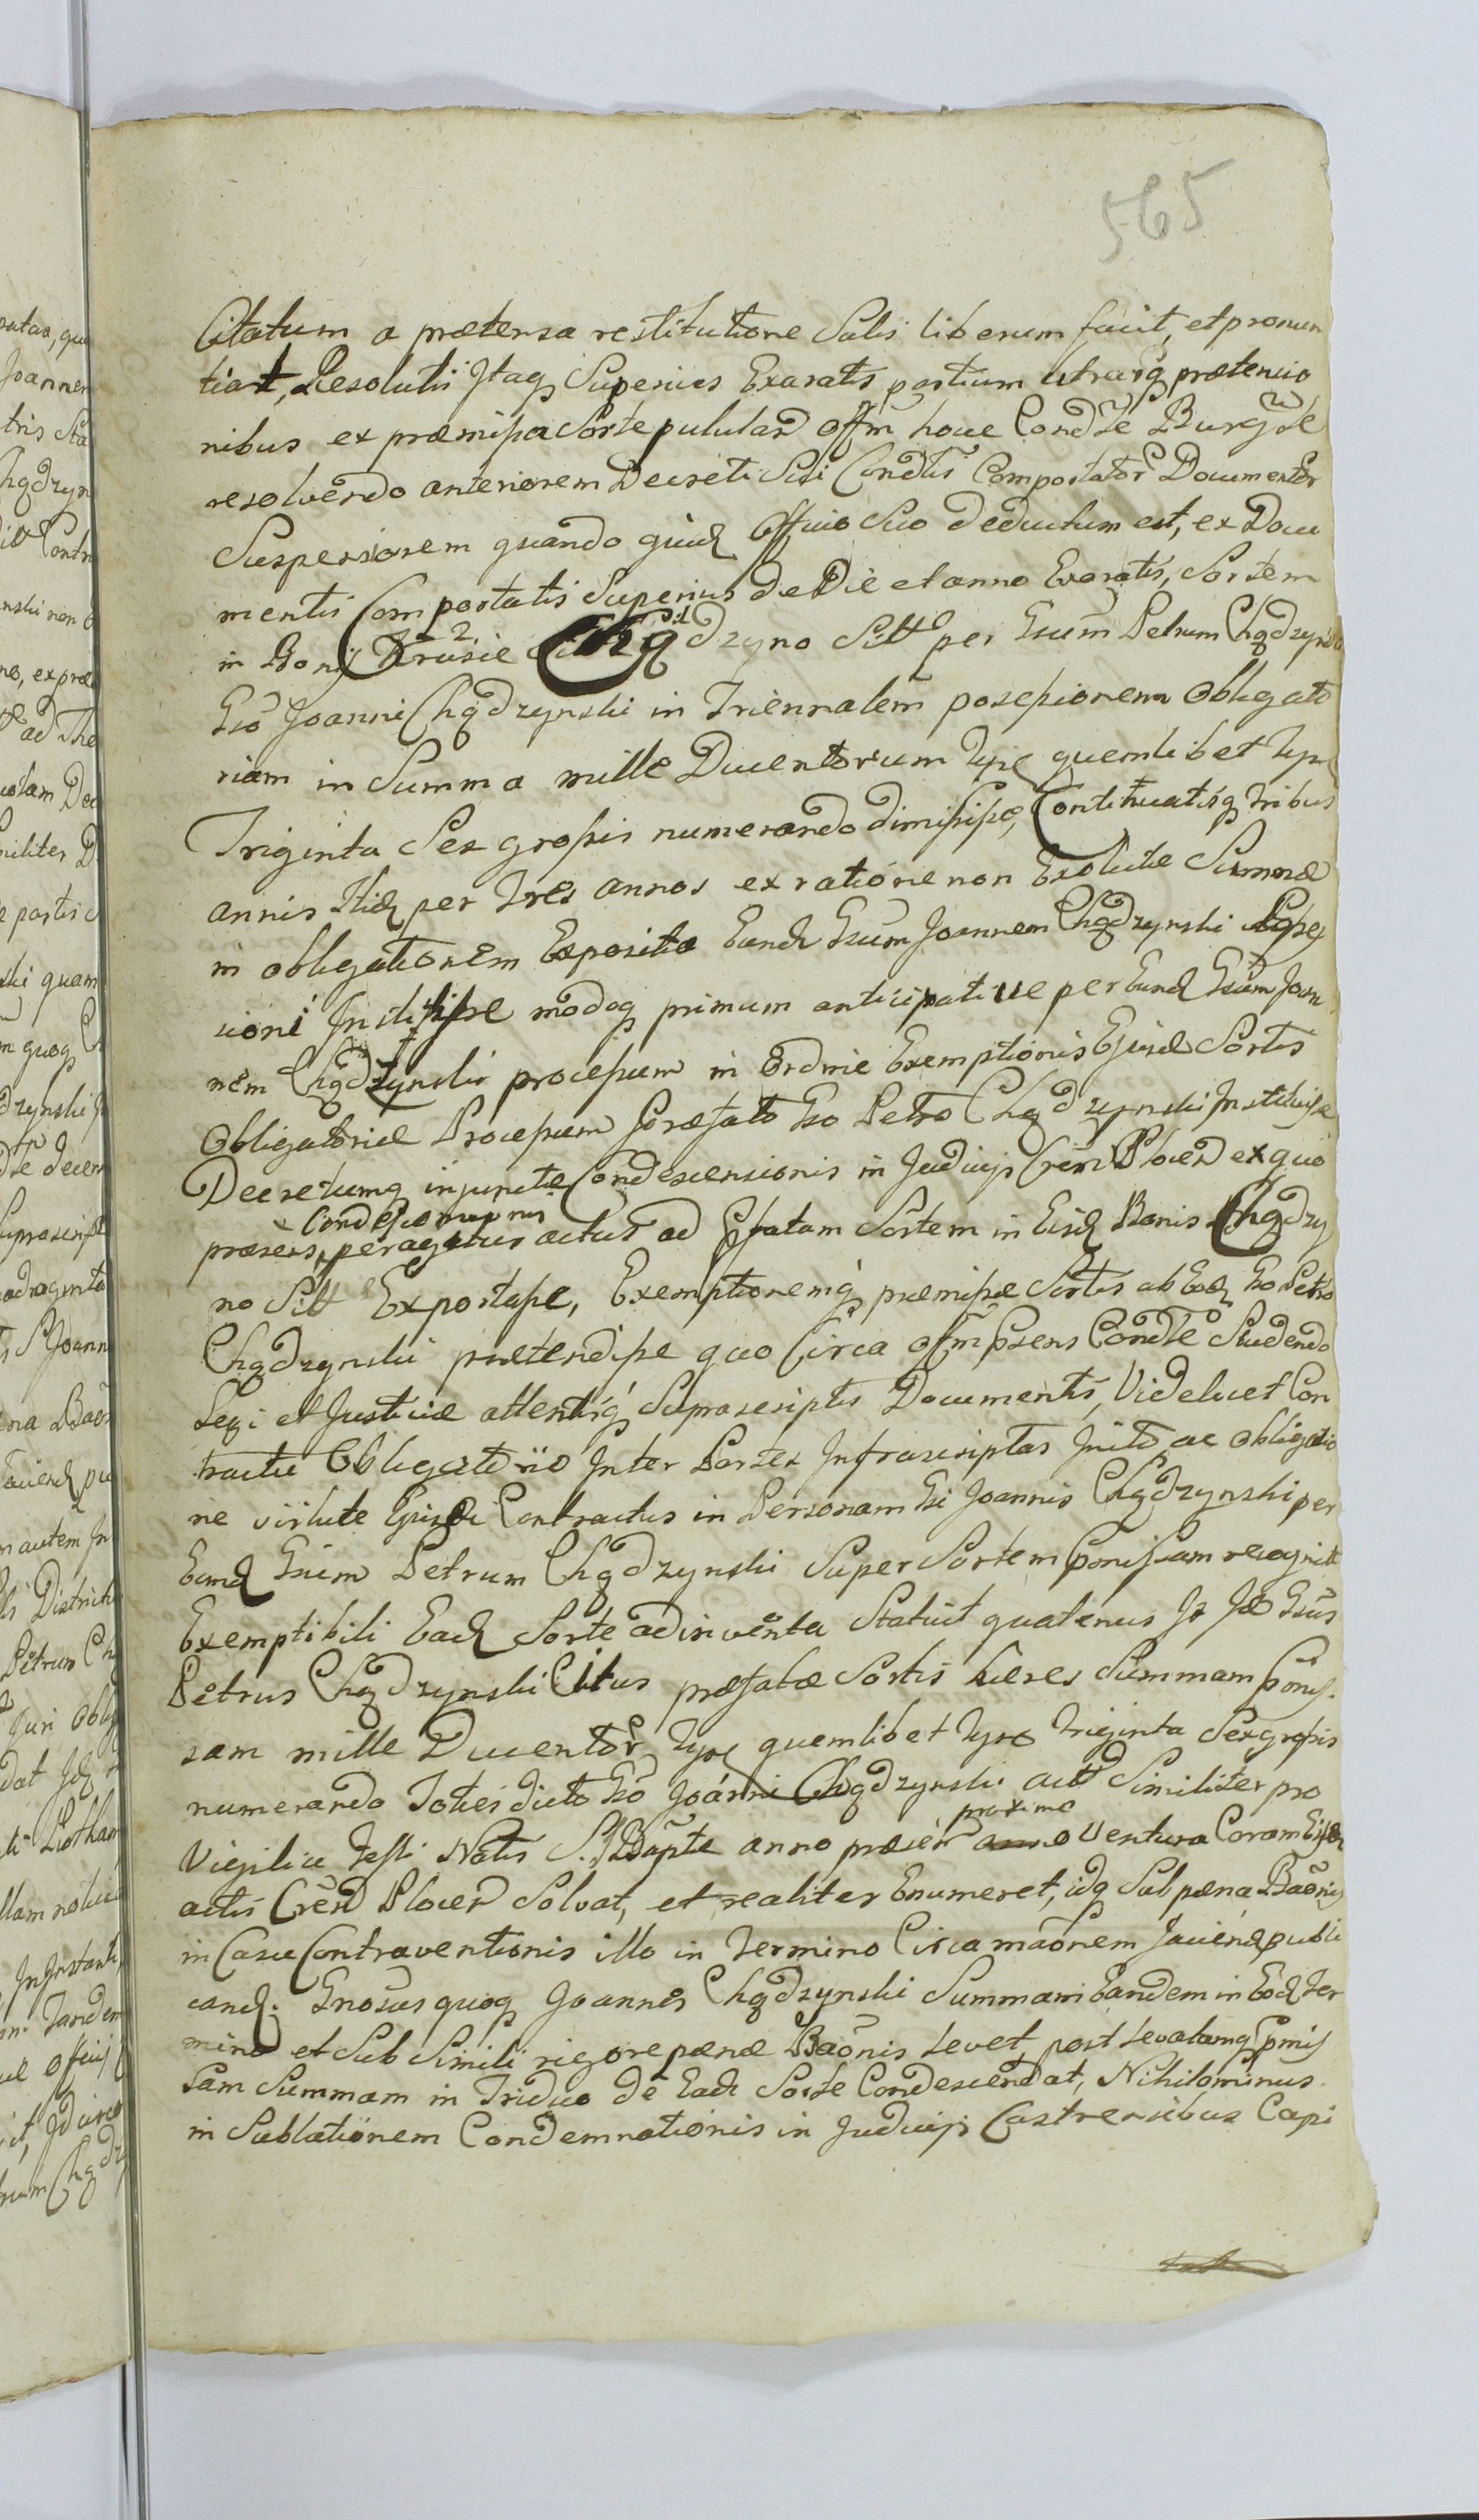 565
Citatum a prætensa restitutione Salis liberum facit, et pronun
tiat, Resolutis Itaq Superius Exaratis partium utrarq prætensio
nibus ex præmissa Sorte pululan Offm hocce Condste Burgste
resolvendo anteriorem Decreti Sui Condlis Comportator Documentor
Suspensionem quando quid Officio Suo deductum est, ex Docu
mentis Comportatis Superius de Die et anno Exaratis, Sortem
in Bonis Krusie Chądzyno Sitt per Gsum Petrum Chądzynski
Gso Joanni Chądzynski in Triennalem possessionem Obligato
riam in Summa mille Ducentorum Tyn quemlibet Tyn
Triginta Sex grossis numerando dimisisse, Continuatisq tribus
annis Itid per Tres annos ex ratione non Exolutæ Summæ
in obligationem Expositæ Eund Gsum Joannem Chądzynski
sioni Institisse modoq primum anticipative per Eund Gsum Joan
nem Chądzynski processum in Ordine Exemptionis Ejusd Sortis
Obligatoriæ Processum Præfato Gso Petro Chądzynski Instituisse
Decretumq injunctæ Condescensionis in Judicijs Cren Plocen ex quo
præsens Condescensionis peragitur actus ad Pfatam Sortem in Eisd Bonis Chądzy
no Sitt Exportasse, Exemptionemq præmissæ Sortis ab Eod Gso Petro
Chądzynski prætendisse quo Circa Offm Psens Condste Studendo
Legi et Justitiæ attentisq Suprascriptis Documentis, Videlicet Con
tractu Obligatorio Inter Partes Infrascriptas Inito ac obligatio
ne virtute Ejusd Contractus in Personam Gsi Joannis Chądzynski per
Eund Gsum Petrum Chądzynski Super Sortem Pmissam recognitt
Exemptibili Ead Sorte adinventa Statuit quatenus Is Id Gsus
Petrus Chądzynski Cittus præfatæ Sortis hæres Summam Pmis
sam mille Ducentor Tyn quemlibet Tyn Triginta Sex grossis
numerando Toties dicto Gso Joanni Chądzynski Actt Similiter pro
Vigilia Festi Natis S. J Bapte anno præsen proxime Ventura Coram Eisd
actis Cren Plocen Solvat, et realiter Enumeret, idq Sub pæna Baonis
in Casu Contraventionis illo in Termino Circa maonem Jaciend publi
cand. Gnosus quoq Joannes Chądzynski Summam Eandem in Eod Ter
mino et Sub Simili rigore pænæ Baonis Levet, post Levatamq Pmis
sam Summam in Triduo de Ead Sorte Condescendat, Nihilominus
in Sublationem Condemnationis in Judicijs Castrensibus Capi